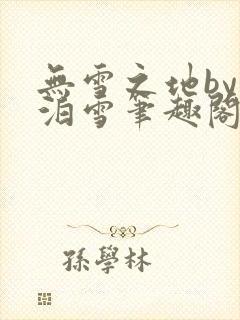 無雪之地by
泊雪筆趣閣
孫學林